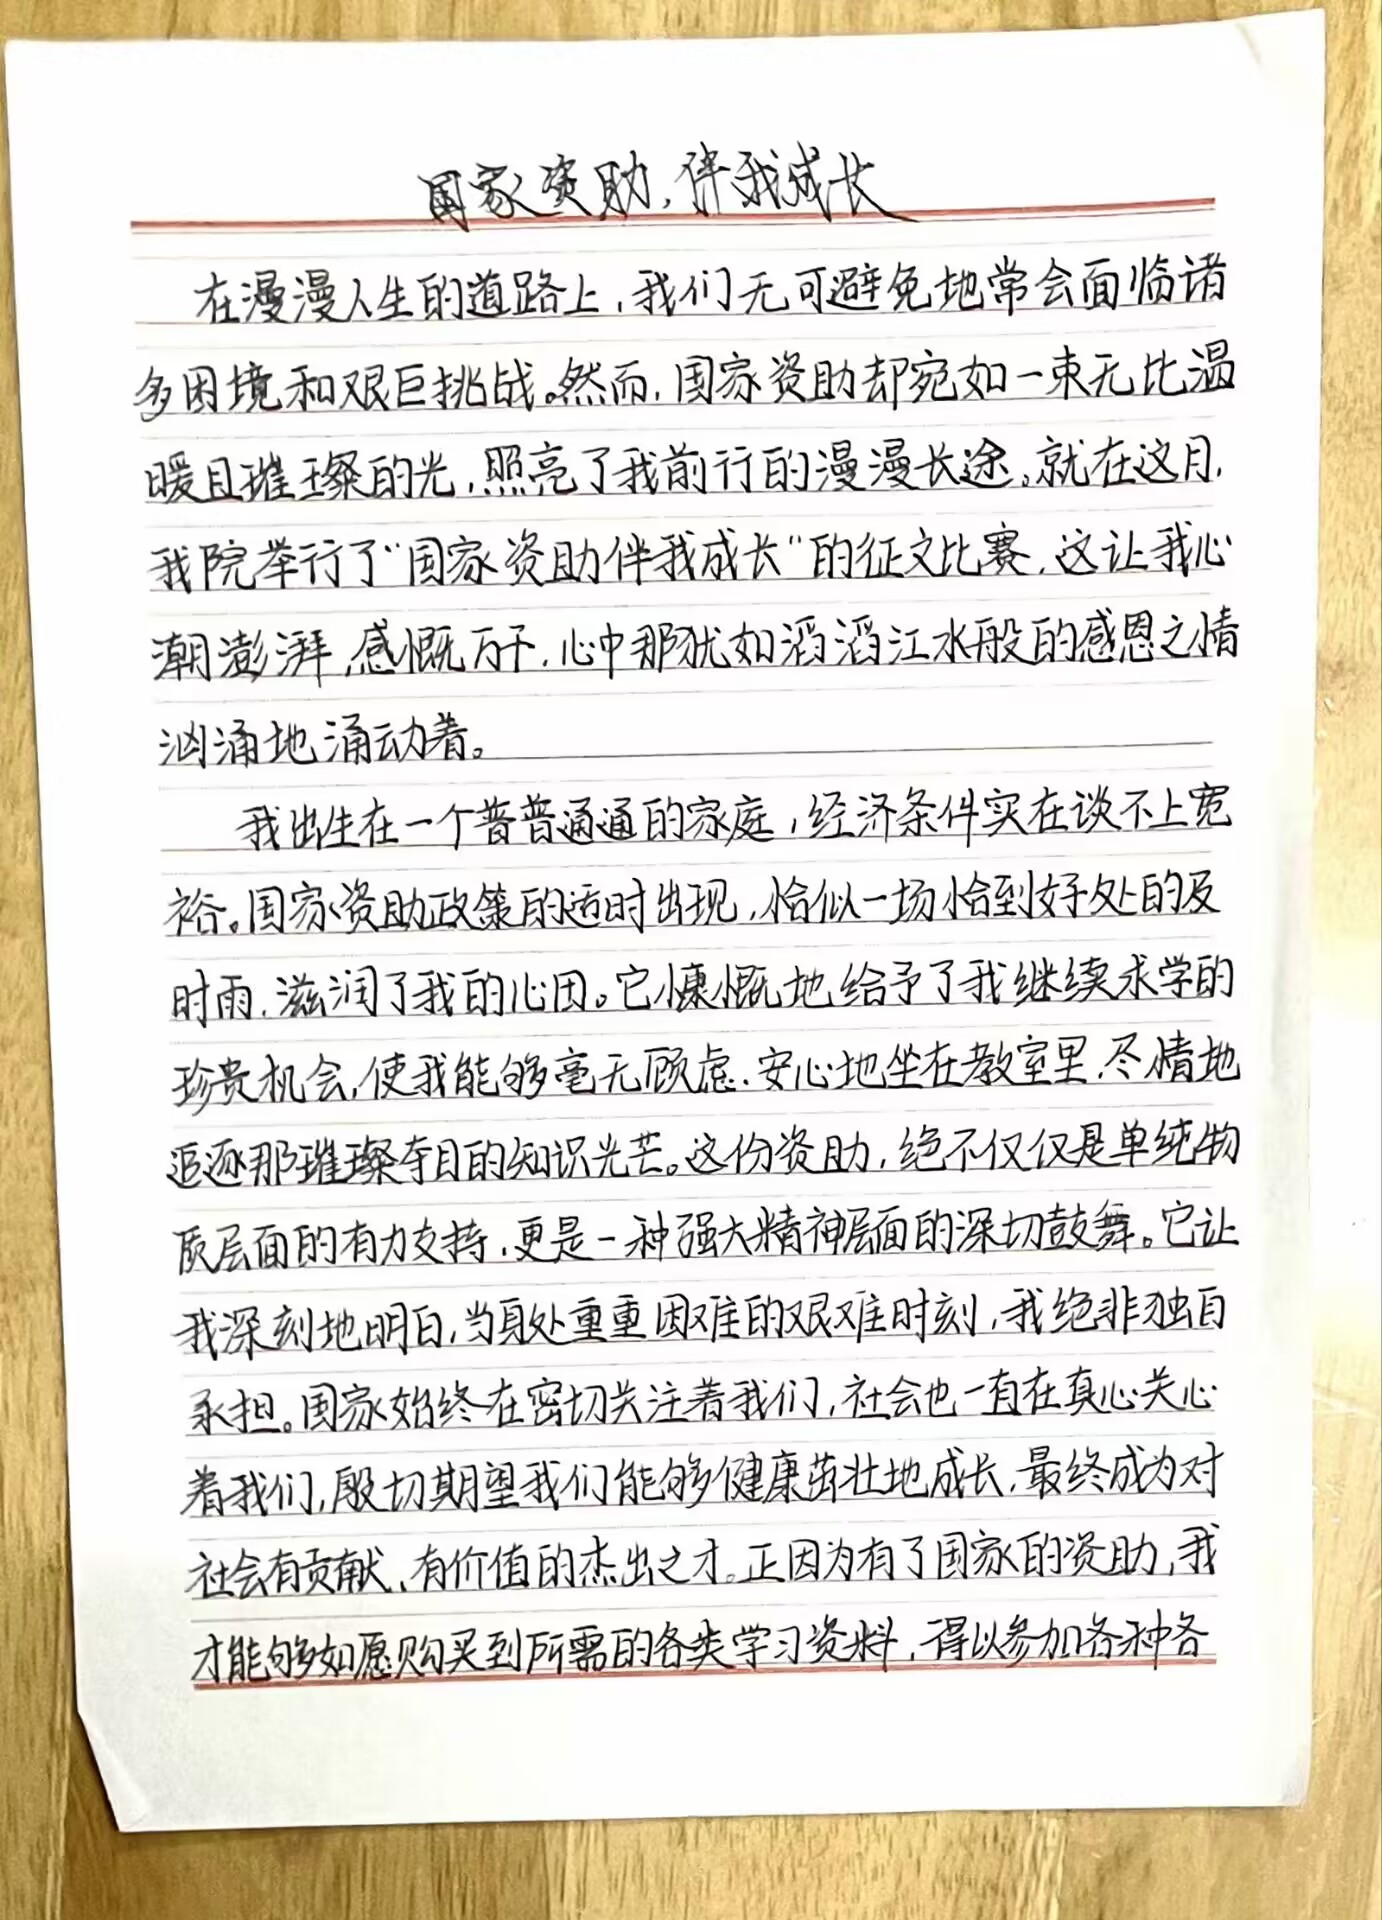 国家资助，伴我成长
在漫漫人生的道路上，我们无可避免地常会面临诸
多困境和艰巨挑战。然而，国家资助却宛如一束无比温
暖且璀璨的光，照亮了我前行的漫漫长途。就在这月，
我院举行了“国家资助伴我成长”的征文比赛，这让我心
潮澎湃，感慨万千，心中那犹如滔滔江水般的感恩之情
汹涌地涌动着。
我出生在一个普普通通的家庭，经济条件实在谈不上宽
裕。国家资助政策的适时出现，恰似一场恰到好处的及
时雨，滋润了我的心田。它慷慨地给予了我继续求学的
珍贵机会，使我能够毫无顾虑、安心地坐在教室里，尽情地
追逐那璀璨夺目的知识光芒。这份资助，绝不仅仅是单纯物
质层面的有力支持，更是一种强大精神层面的深切鼓舞。它让
我深刻地明白，当身处重重困难的艰难时刻，我绝非独自
承担。国家始终在密切关注着我们，社会也一直在真心关心
着我们，殷切期望我们能够健康茁壮地成长，最终成为对
社会有贡献、有价值的杰出之才。正因为有了国家的资助，我
才能够如愿购买到所需的各类学习资料，得以参加各种各